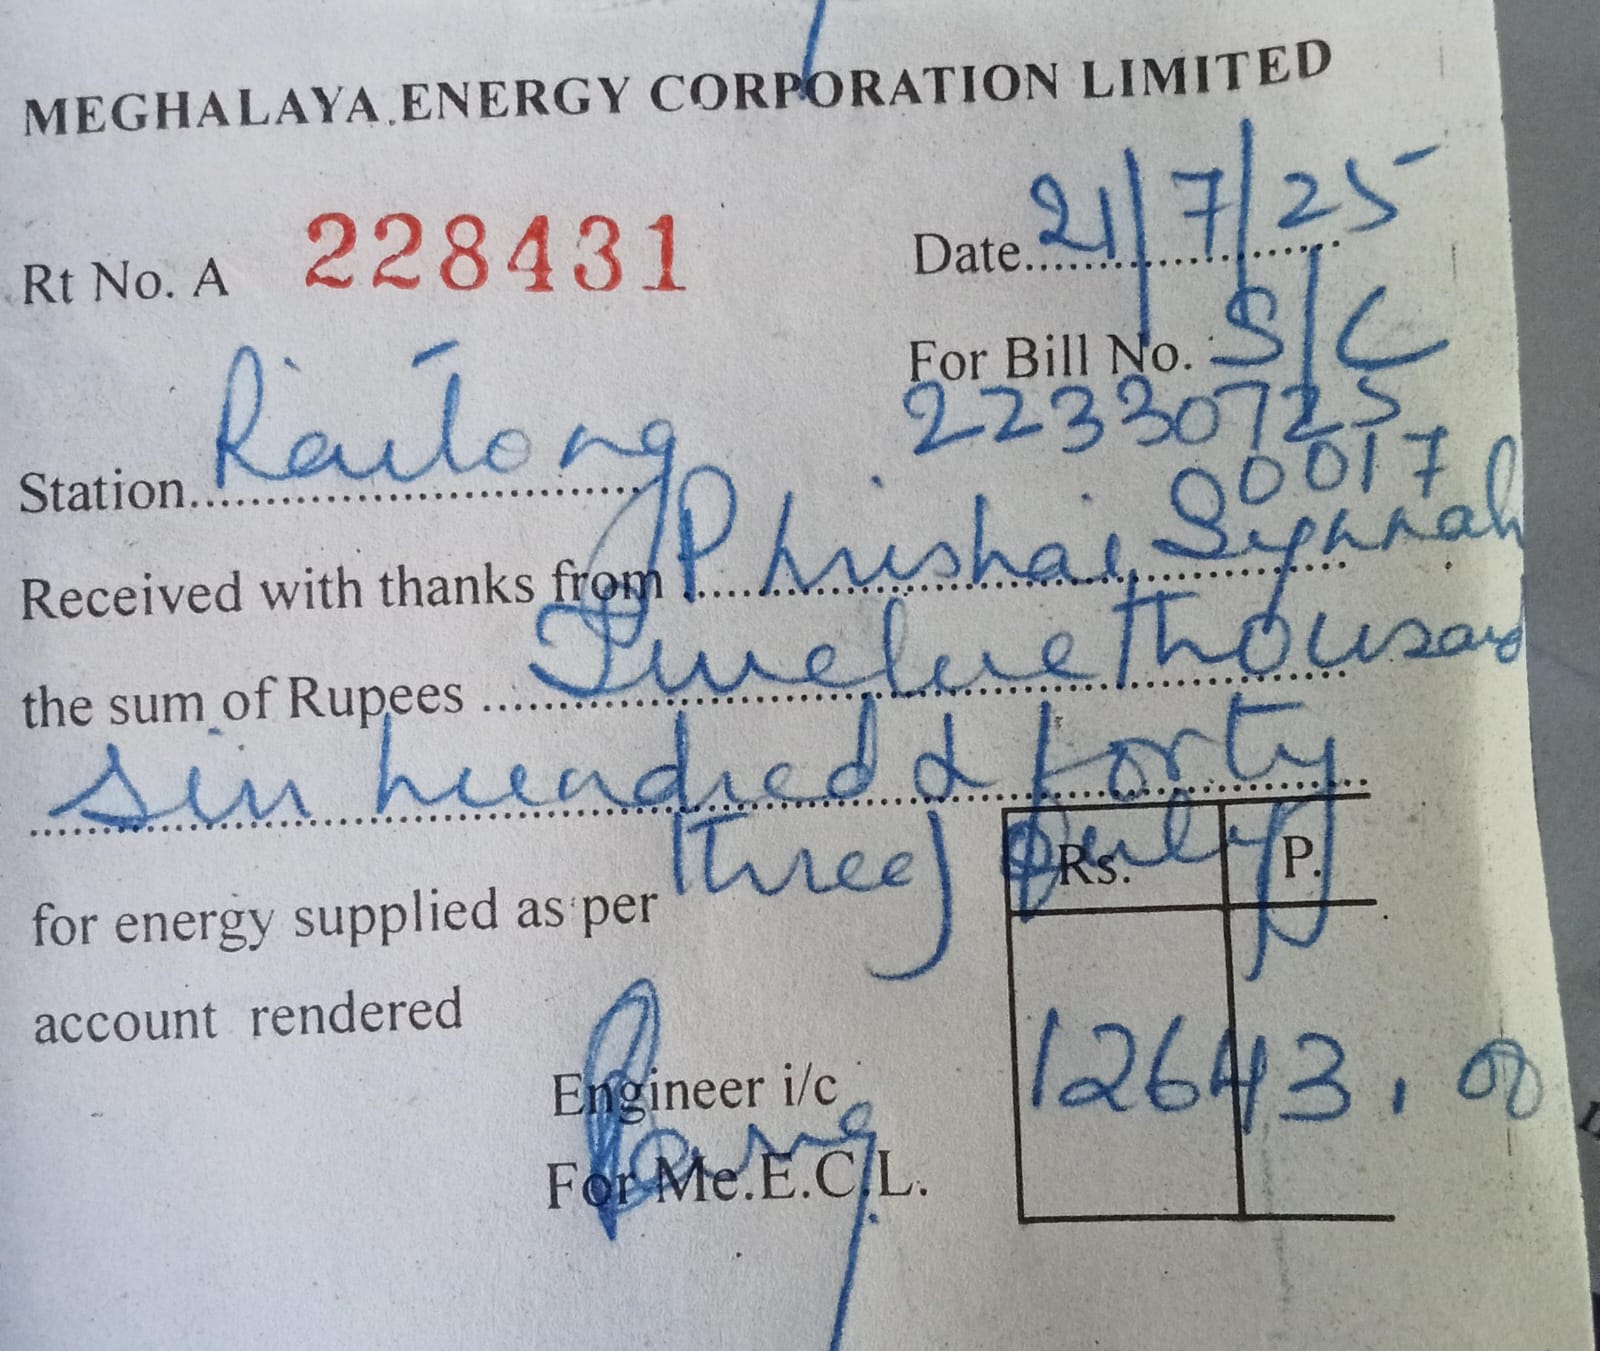 MEGHALAYA ENERGY CORPORATION LIMITED
Rt No. A 228431 Date 21/7/25
For Bill No. S/C
22330725
0017
Station Raitong
Received with thanks from Phrishai Synnah
the sum of Rupees Twelve thousand
six hundred & forty
three) only
for energy supplied as per
account rendered
Rs. P.
12643.00
Engineer i/c
For Me.E.C.L.